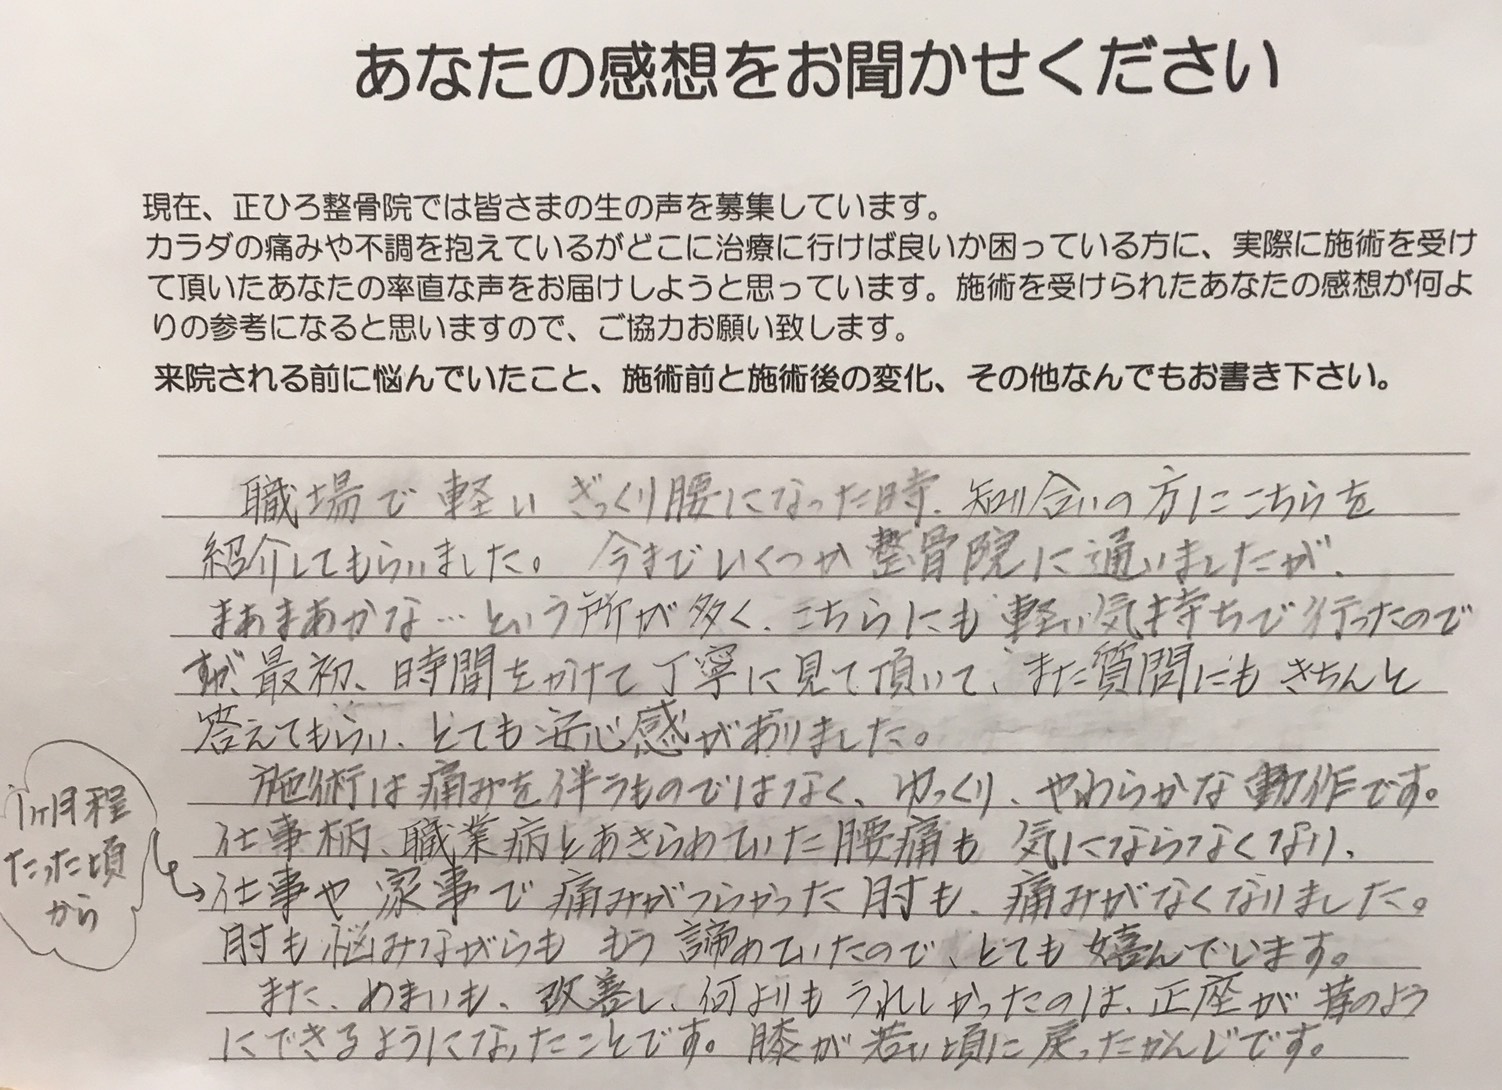 あなたの感想をお聞かせください
現在、正ひろ整骨院では皆さまの生の声を募集しています。
カラダの痛みや不調を抱えているがどこに治療に行けば良いか困っている方に、実際に施術を受け
て頂いたあなたの率直な声をお届けしようと思っています。施術を受けられたあなたの感想が何よ
りの参考になると思いますので、ご協力お願い致します。
来院される前に悩んでいたこと、施術前と施術後の変化、その他なんでもお書き下さい。
職場で軽いぎっくり腰になった時、知り合いの方にこちらを
紹介してもらいました。今までいくつか整骨院に通いましたが、
まあまあかな…という所が多く、こちらにも軽い気持ちで行ったので
すが、最初、時間をかけて丁寧に見て頂いて、また質問にもきちんと
答えてもらい、とても安心感がありました。
施術は痛みを伴うものではなく、ゆっくり、やわらかな動作です。
仕事柄、職業病とあきらめていた腰痛も気にならなくなり、
仕事や家事で痛みがつらかった肘も、痛みがなくなりました。
肘も悩みながらももう諦めていたので、とても嬉んでいます。
また、めまいも、改善し、何よりもうれしかったのは、正座が昔のよう
にできるようになったことです。膝が若い頃に戻ったかんじです。
1ヶ月程
たった頃
から